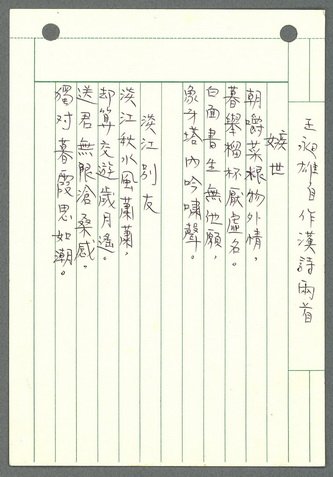 王昶雄自作漢詩兩首
嬉世
朝嚼菜根物外情，
暮舉榴杯厭虛名。
白面書生無他願，
象牙塔內吟嘯聲。
淡江別友
淡江秋水風蕭蕭，
却算交遊歲月遙。
送君無限滄桑感。
獨对暮霞思如潮。